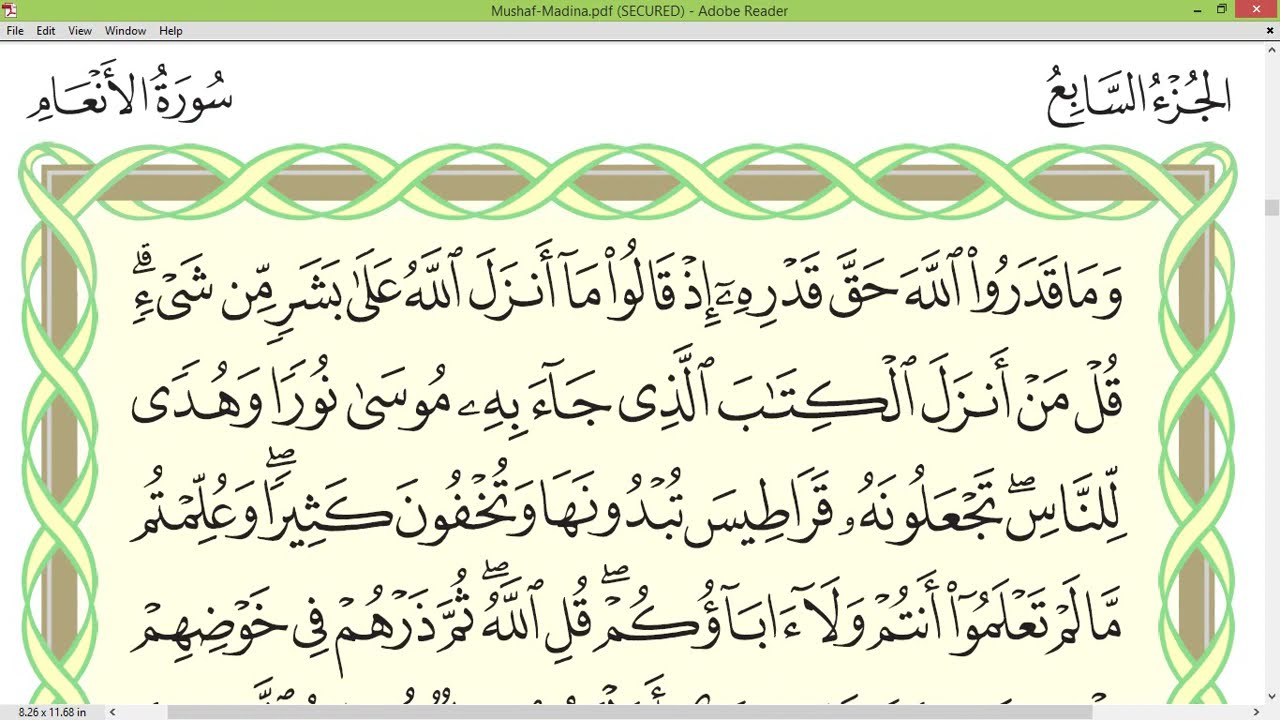 Mushaf-Madina.pdf (SECURED) - Adobe Reader
File Edit View Window Help
الجُزْءُ السَّابِعُ
سُورَةُ الأَنْعَامِ
وَمَا قَدَرُوا۟ ٱللَّهَ حَقَّ قَدْرِهِۦٓ إِذْ قَالُوا۟ مَآ أَنزَلَ ٱللَّهُ عَلَىٰ بَشَرٍ مِّن شَىْءٍ ۗ
قُلْ مَنْ أَنزَلَ ٱلْكِتَـٰبَ ٱلَّذِى جَآءَ بِهِۦ مُوسَىٰ نُورًا وَهُدًى
لِّلنَّاسِ ۖ تَجْعَلُونَهُۥ قَرَاطِيسَ تُبْدُونَهَا وَتُخْفُونَ كَثِيرًا ۖ وَعُلِّمْتُم
مَّا لَمْ تَعْلَمُوٓا۟ أَنتُمْ وَلَآ ءَابَآؤُكُمْ ۖ قُلِ ٱللَّهُ ۖ ثُمَّ ذَرْهُمْ فِى خَوْضِهِمْ
8.26 x 11.68 in